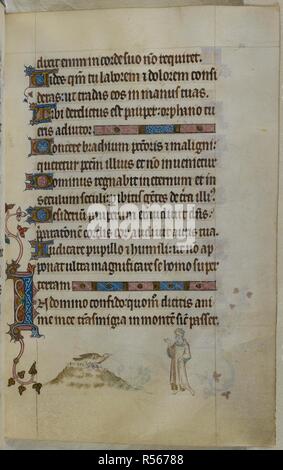 dixit enim in corde suo nō requiret.
Uides qm̄ tu laborem ⁊ dolorem consi
deras: ut tradas eos in manus tuas.
Tibi derelictus est pauper: orphano tu
eris adiutor.
Contere brachium pctōris ⁊ maligni:
queretur pctm̄ illius et nō inuenietur
Dominus regnabit in eternum et in
seculum seculi: gētes de tr̄a illiꝰ.
Desideriū pauperum exaudiuit dn̄s:
cordis eoꝝ audiuit auris tua.
Iudicare pupillo ⁊ humili: ut nō ap
ponat ultra magnificare se homo super
terram
In domino confido: quom̄ dicitis ani
me mee trāsmigra in montē sicut passer.
alamy
alamy
Image ID: R56788
www.alamy.com